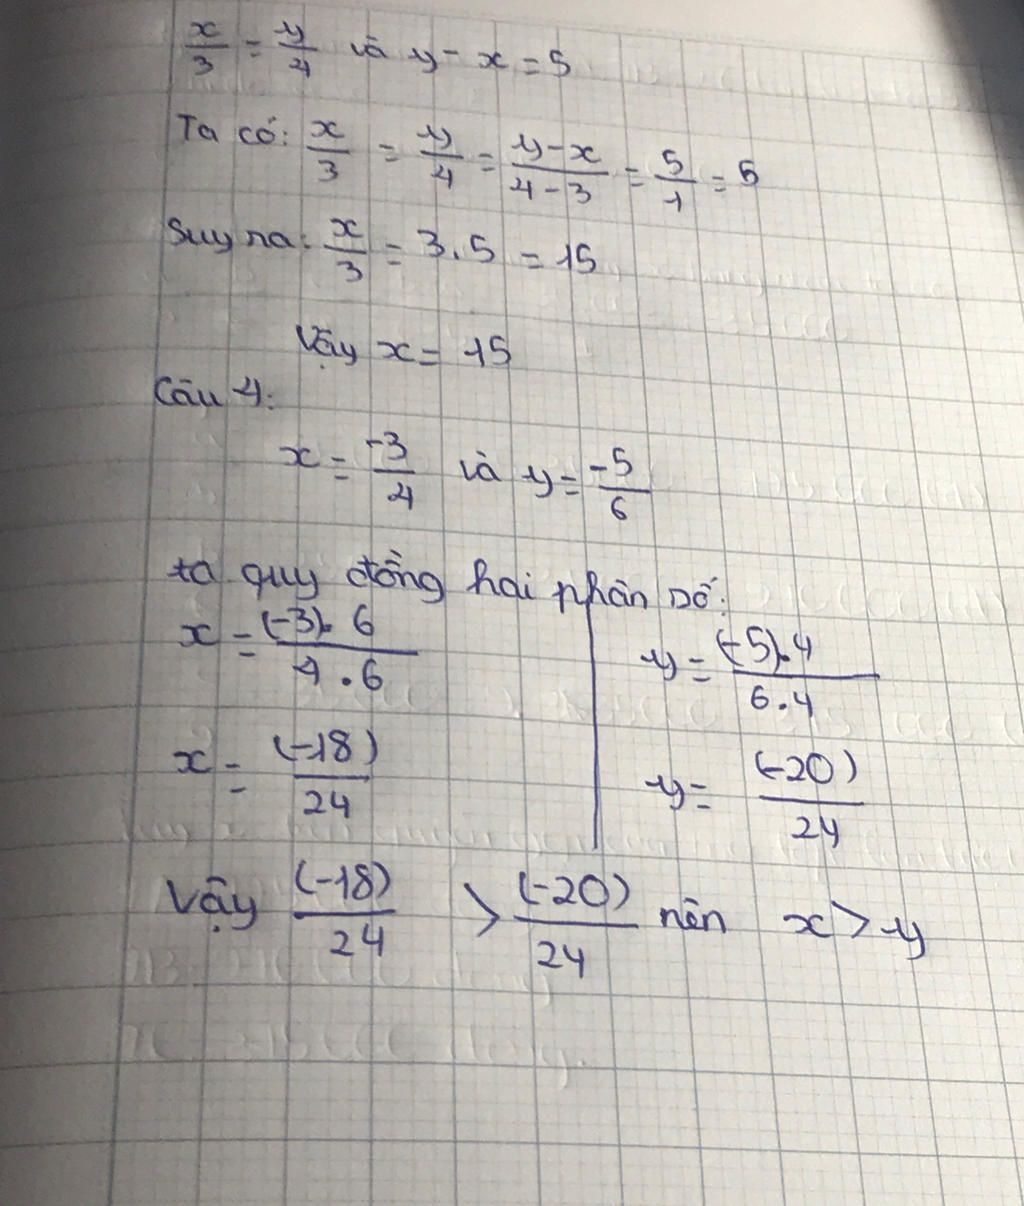 x/3 = y/4 và y - x = 5
Ta có: x/3 = y/4 = y-x/4-3 = 5/1 = 5
Suy ra: x/3 = 3.5 = 15
Vậy x = 15
Câu 4:
x = -3/4 và y = -5/6
ta quy đồng hai phân số:
x = (-3).6/4.6
y = (-5).4/6.4
x = (-18)/24
y = (-20)/24
Vậy (-18)/24 > (-20)/24 nên x > y